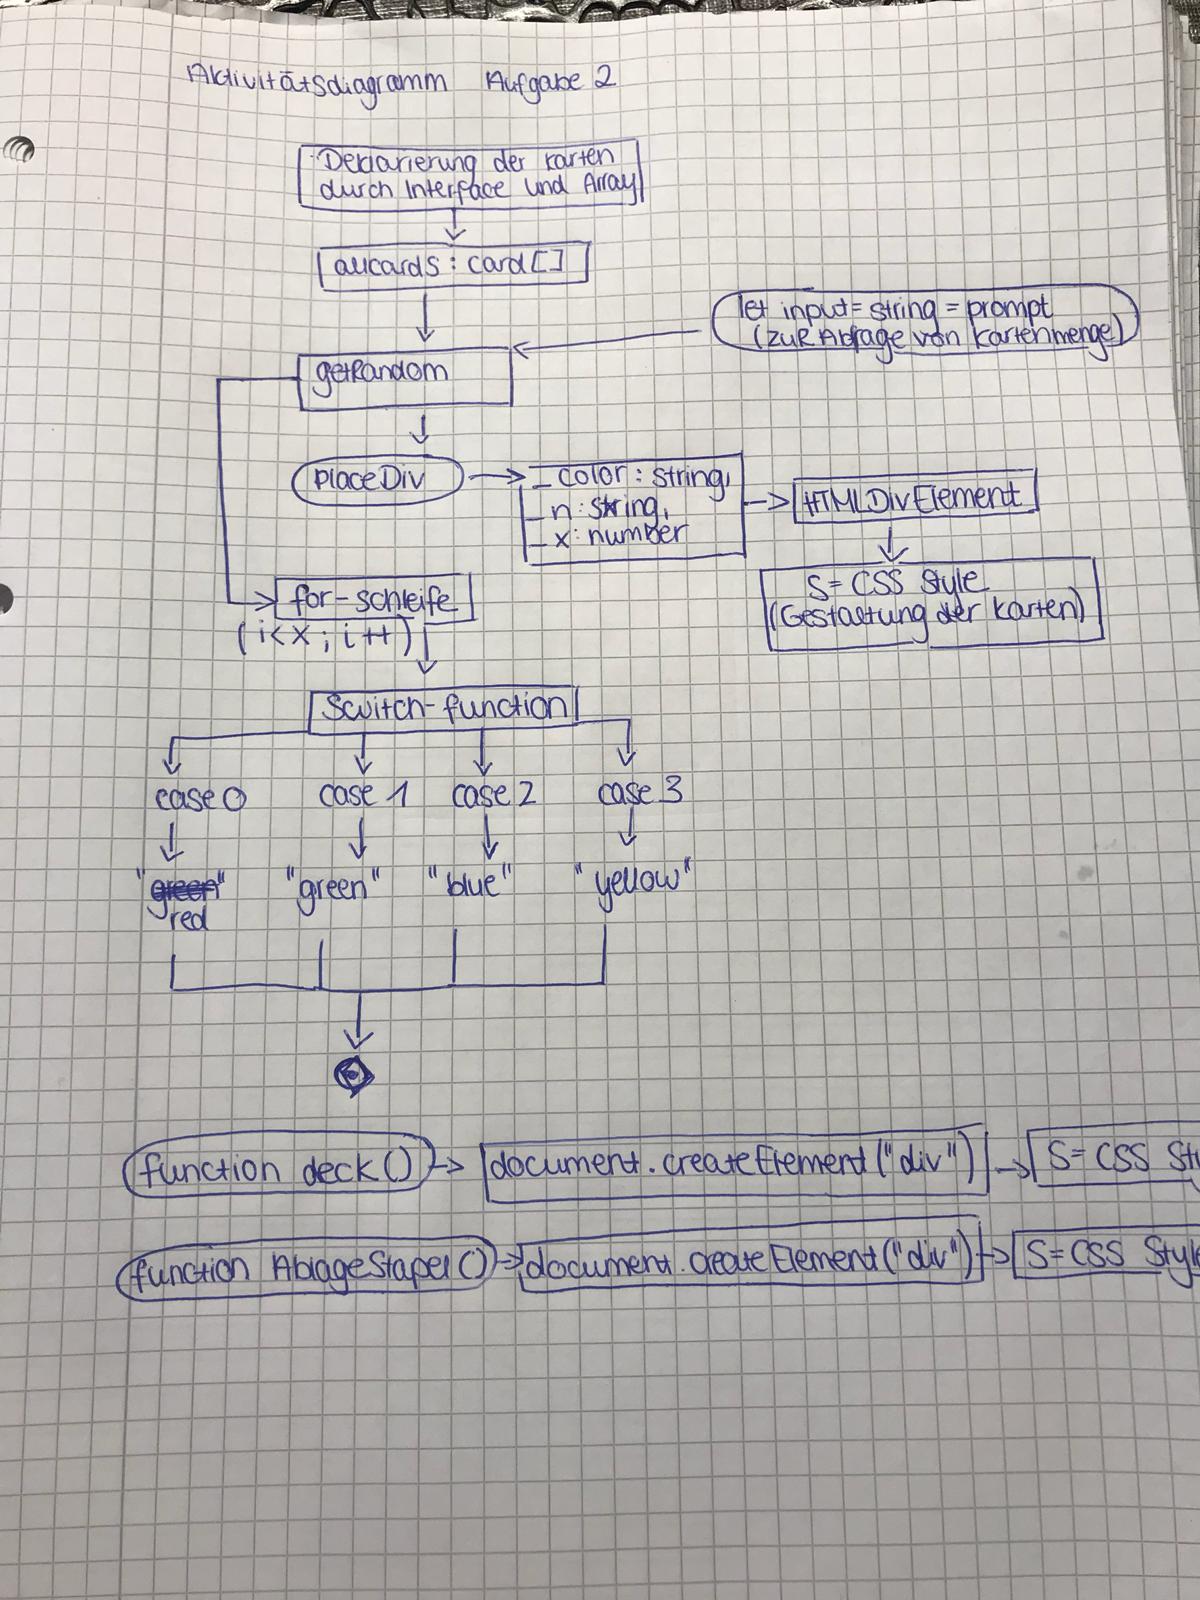 Aktivitätsdiagramm Aufgabe 2
Deklarierung der Karten
durch Interface und Array
allcards : card[]
let input = string = prompt
(zur Abfrage von Kartenmenge)
getRandom
placeDiv
_color : string,
_n : string,
_x : number
HTMLDivElement
S = CSS Style
(Gestaltung der Karten)
for-schleife
(i < x ; i++)
Switch-function
case 0 case 1 case 2 case 3
"green" "green" "blue" "yellow"
red
function deck() document.createElement("div") S = CSS Sty
function AblageStapel() document.createElement("div") S = CSS Style